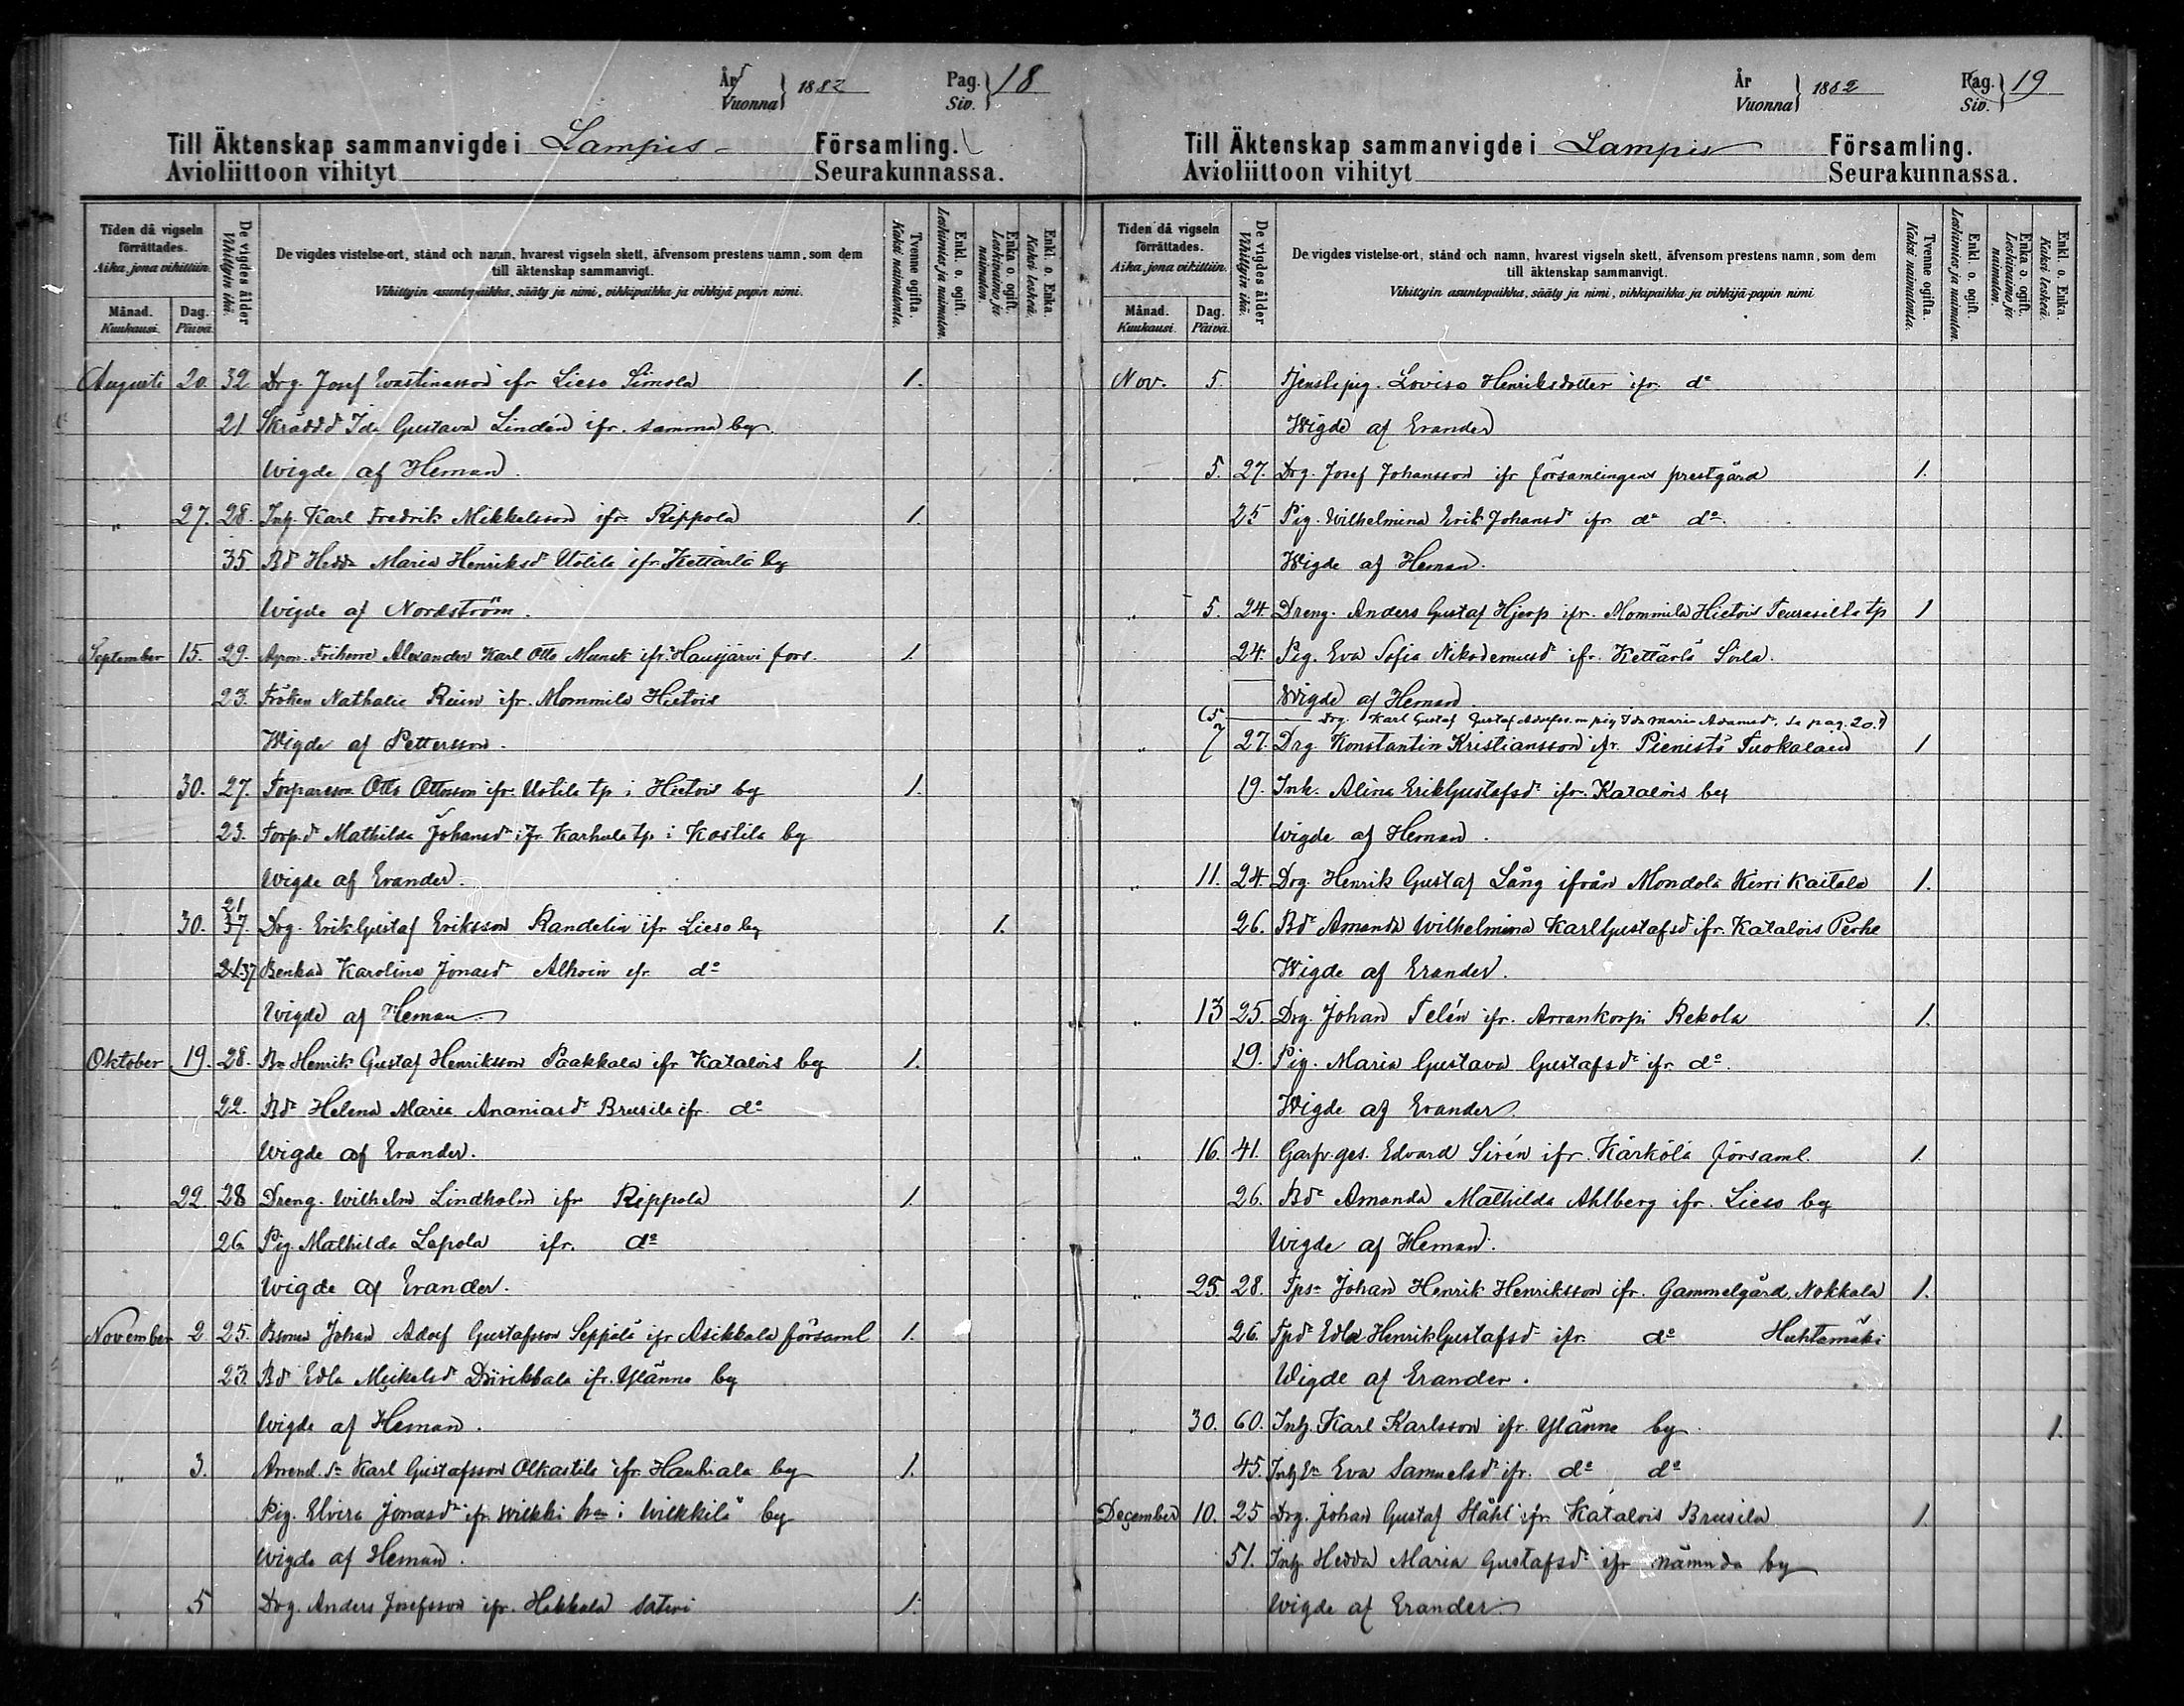 År Vuonna } 1882 Pag. Siv. } 18
Till Äktenskap sammanvigde i Lampis Församling.
Avioliittoon vihityt Seurakunnassa.
Tiden då vigseln förrättades. Aika, jona vihittiin.
Månad. Kuukausi. Dag. Päivä.
De vigdes ålder Vihittyin ikä.
De vigdes vistelse-ort, stånd och namn, hvarest vigseln skett, äfvensom prestens namn, som dem till äktenskap sammanvigt.
Vihittyin asuntopaikka, sääty ja nimi, vihkipaikka ja vihkijä papin nimi.
Tvenne ogifta. Kaksi naimatonta.
Enkl. o. ogift. Leskimies ja naimaton.
Enka o. ogift. Leskivaimo ja naimaton.
Enkl. o. Enka. Kaksi leskeä.
Augusti 20. 32 Drg. Josef ifr Lieso Simola 1.
21 Skrädd.d Ida Gustava Lindén ifr. samma by.
Wigde af Heman.
" 27. 28. Inh. Karl Fredrik Mikkelsson ifr Rippola 1.
35 Bd Hedda Maria Henriksd Uotila ifr. Kettärlä by
Wigde af Nordström.
September 15. 29. Friherre Alexander Karl Otto Munck ifr. Hausjärvi förs. 1.
23. Fröken Nathalie ifr. Mommila Hietois
Wigde af Pettersson.
" 30. 27. Otto Ottosson ifr. Uotila tp i Hietois by 1.
23. Torp.d Mathilda Johansd ifr Karhula tp. i Kostila by
Wigde af Erander.
" 30. 21 37. Drg. Erik Gustaf Eriksson Randelin ifr Lieso by 1.
21 37 Karolina Jonasd ifr. do
Wigde af Heman
Oktober 19. 28. Bn Henrik Gustaf Henriksson Paakkala ifr Katalois by 1.
22. Bd Helena Maria Ananiasd Brusila ifr. do
Wigde af Erander.
" 22. 28 Dreng. Wilhelm Lindholm ifr Rippola 1.
26. Pig. Mathilda Lepola ifr. do
Wigde af Erander.
November 2 25. Johan Adolf Gustafsson Seppälä ifr Asikkala församl 1.
23. Bd Edla ifr. Ylänne by
Wigde af Heman.
" 3. Karl Gustafsson Alkastila ifr. Hauhiala by 1.
Pig. Elvira Jonasd ifr. Wilkki i Wilkkilä by
Wigde af Heman.
" 5 Drg. Anders Josefsson ifr. Hakkala 1.
År Vuonna } 1882 Pag. Siv. } 19
Till Äktenskap sammanvigde i Lampis Församling.
Avioliittoon vihityt Seurakunnassa.
Tiden då vigseln förrättades. Aika, jona vihittiin.
Månad. Kuukausi. Dag. Päivä.
De vigdes ålder Vihittyin ikä.
De vigdes vistelse-ort, stånd och namn, hvarest vigseln skett, äfvensom prestens namn, som dem till äktenskap sammanvigt.
Vihittyin asuntopaikka, sääty ja nimi, vihkipaikka ja vihkijä-papin nimi
Tvenne ogifta. Kaksi naimatonta.
Enkl. o. ogift. Leskimies ja naimaton.
Enka o. ogift. Leskivaimo ja naimaton.
Enkl. o. Enka. Kaksi leskeä.
Nov. 5. Tjenstepig. Lovisa Henriksdotter ifr. do
Wigde af Erander
" 5. 27. Drg. Josef Johansson ifr församlingens prestgård 1.
25 Pig. Wilhelmina Erik Johansd ifr do do.
Wigde af Heman.
" 5. 24. Dreng. Anders Gustaf Hjerp ifr. Mommila Hietois Teurasilta tp 1
24. Pig. Eva Sofia Nikodemusd ifr. Kettärlä
Wigde af Heman.
(5 Drg. Karl Gustaf Gustaf Adolfss. m pig Ida Maria Adamsd, se pag. 20.)
" 7 27. Drg. Konstantin Kristiansson ifr. Pienistö 1
19. Inh. Alina ErikGustafsd ifr. Katalois by
Wigde af Heman.
" 11. 24. Drg. Henrik Gustaf Lång ifrån Mondola Kerri Kaitala 1.
26. Bd Amanda Wilhelmina KarlGustafsd ifr. Katalois Perhe
Wigde af Erander.
" 13 25. Drg. Johan Telén ifr. Arrankorpi Rekola 1.
19. Pig. Maria Gustava Gustafsd ifr. do.
Wigde af Erander.
" 16. 41. Garfv.ges. Edvard Sirén ifr. Kärkölä församl. 1.
26. Bd Amanda Mathilda Ahlberg ifr. Lieso by
Wigde af Heman.
" 25. 28. Tps. Johan Henrik Henriksson ifr. Gammelgård, Nokkala 1.
26. Tpd Edla HenrikGustafsd ifr. do Huhtamäki
Wigde af Erander.
" 30. 60. Inh. Karl Karlsson ifr. Ylänne by 1.
45. Eva Samuelsd ifr. do do
December 10. 25 Drg. Johan Gustaf Ståhl ifr. Katalois Brusila 1.
51. Inh Hedda Maria Gustafsd ifr nämnda by
Wigde af Erander.